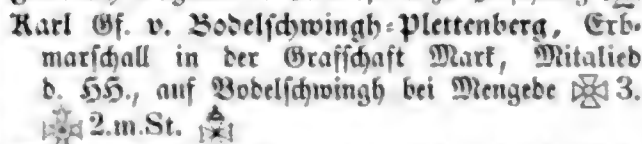 Karl Gf. v. Bodelſchwingh-Plettenberg, Erb-
marſchall in der Grafſchaft Mark, Mitglied
d. HH., auf Bodelſchwingh bei Mengede 3.
2.m.St.